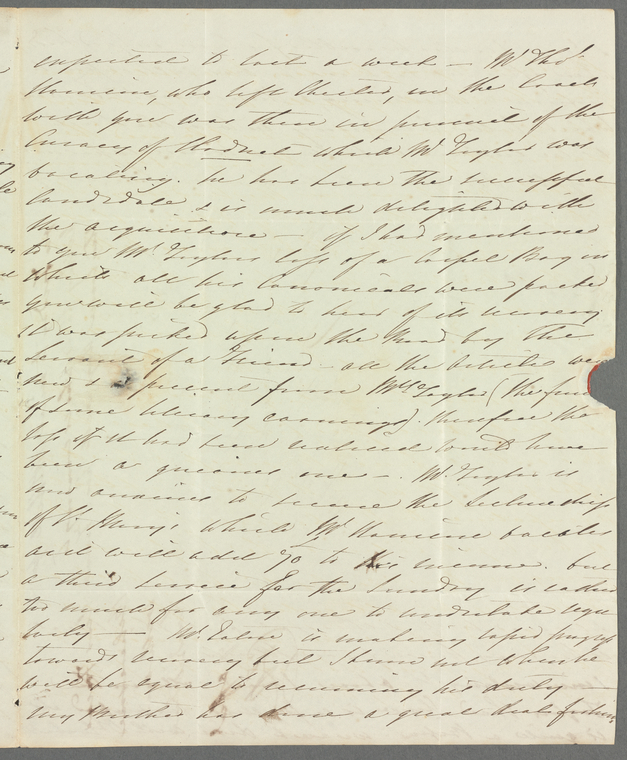 expected to last a week — Mr Thos
who left Chester, in the Coach
with you was then in pursuit of the
Curacy of which Mr Taylor was
vacating. he has been the successful
Candidate & is much delighted with
the acquisition — if I had mentioned
to you Mr Taylors loss of a Carpet Bag in
which all his canonicals were packed
you will be glad to hear of its recovery
it was picked upon the Road by the
Servant of a Friend — all the articles were
new & a present from Mrs Taylor (the fruit
of some literary earnings). therefore the
loss if it had been realized would have
been a grievous one —. Mr Taylor is
now anxious to secure the Lectureship
of St Mary's which Mr vacates
and will add 70 to his income. but
a third service for the Sunday is rather
too much for any one to undertake regu
larly — Mr Eaton is making rapid progress
towards recovery but I know not when he
will be equal to resuming his duty —
my Mother has done a good deal